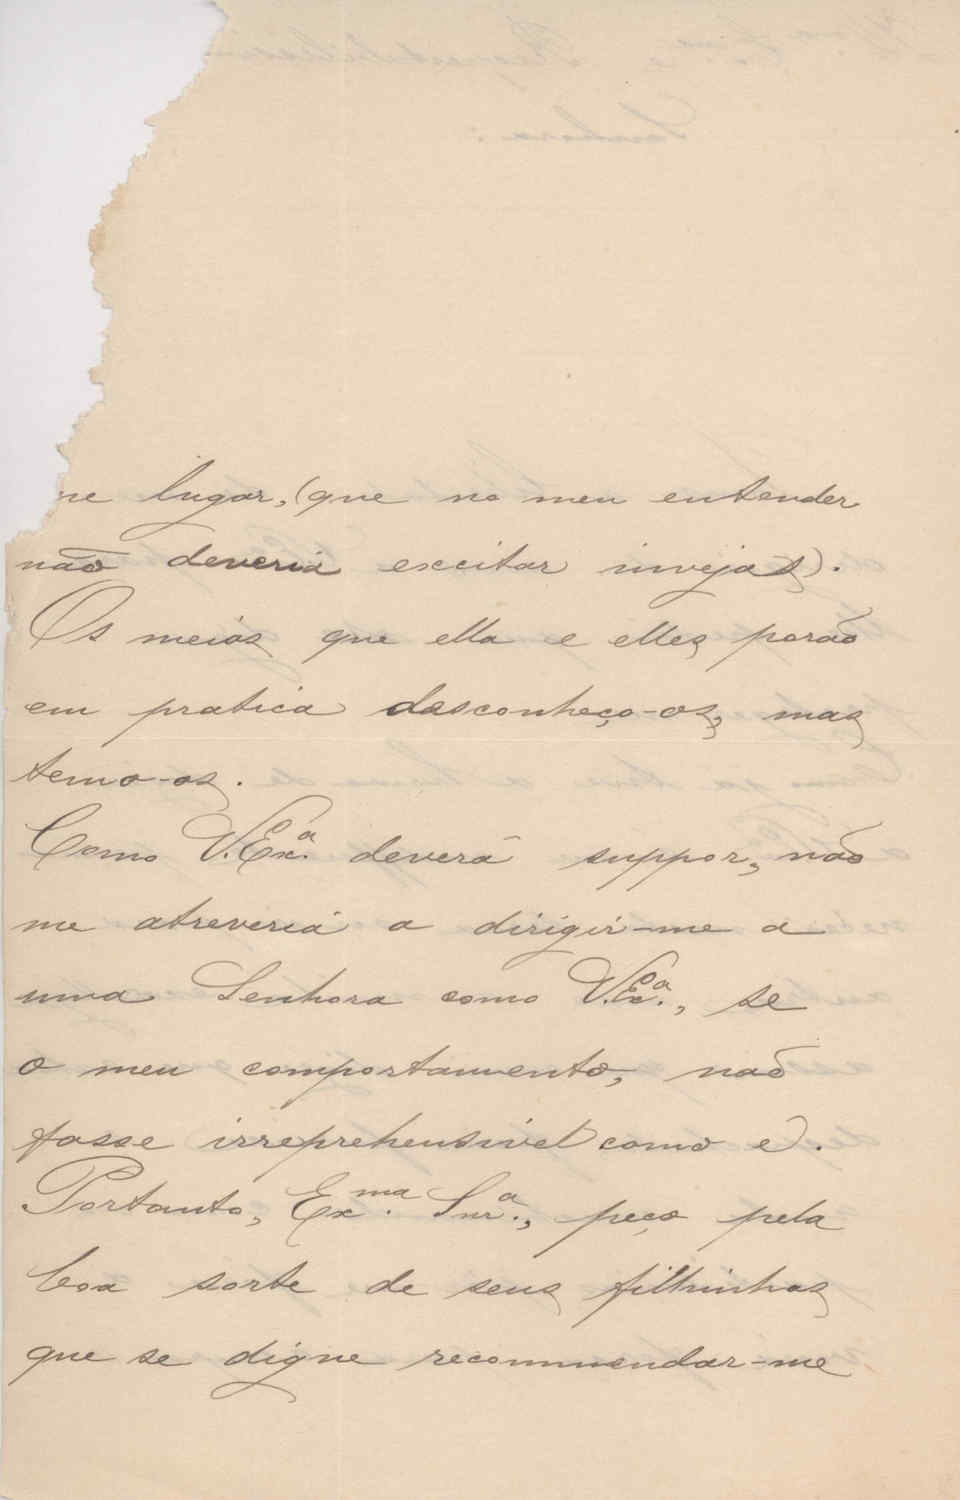 ne lugar, (que no meu entender
não deveria excitar invejas).
Os meios que ella e elles porão
em pratica desconheço-os, mas
temo-os.
Como V. Ex.ª deverá suppor, não
me atreveria a dirigir-me a
uma Senhora como V. Ex.ª, se
o meu comportamento, não
fosse irreprehensivel como é.
Portanto, Ex.ma Snr.ª, peço pela
boa sorte de seus filhinhos
que se digne recommendar-me